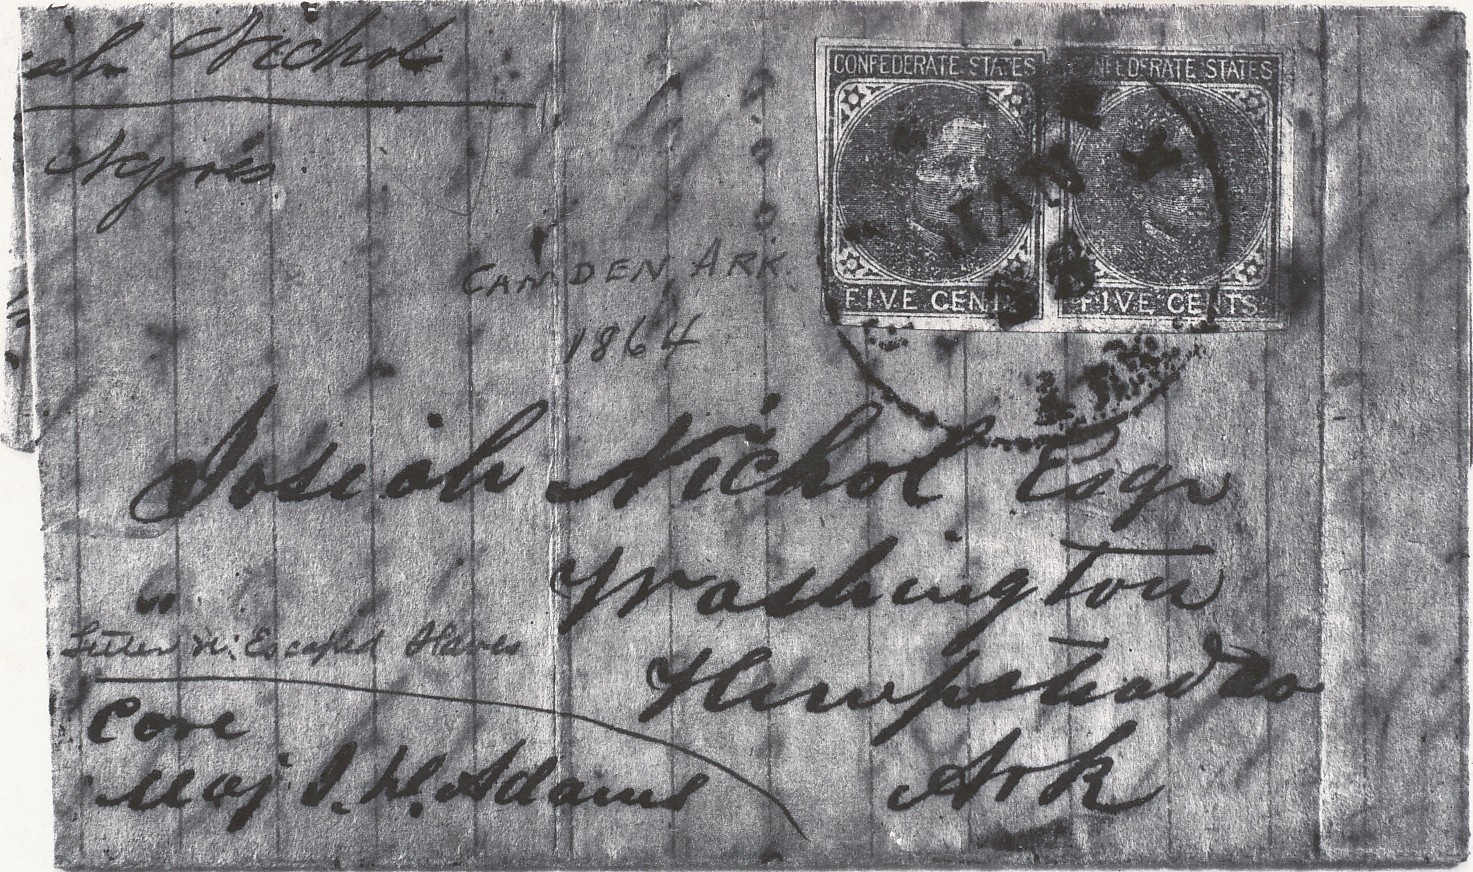 iah Nichol
CONFEDERATE STATES
CONFEDERATE STATES
FIVE CENTS
FIVE CENTS
CAMDEN ARK.
1864
Josiah Nichol Esqr
Washington
Hempstead Co
Ark
Letter Escaped Slaves
Care
Maj J. W. Adams